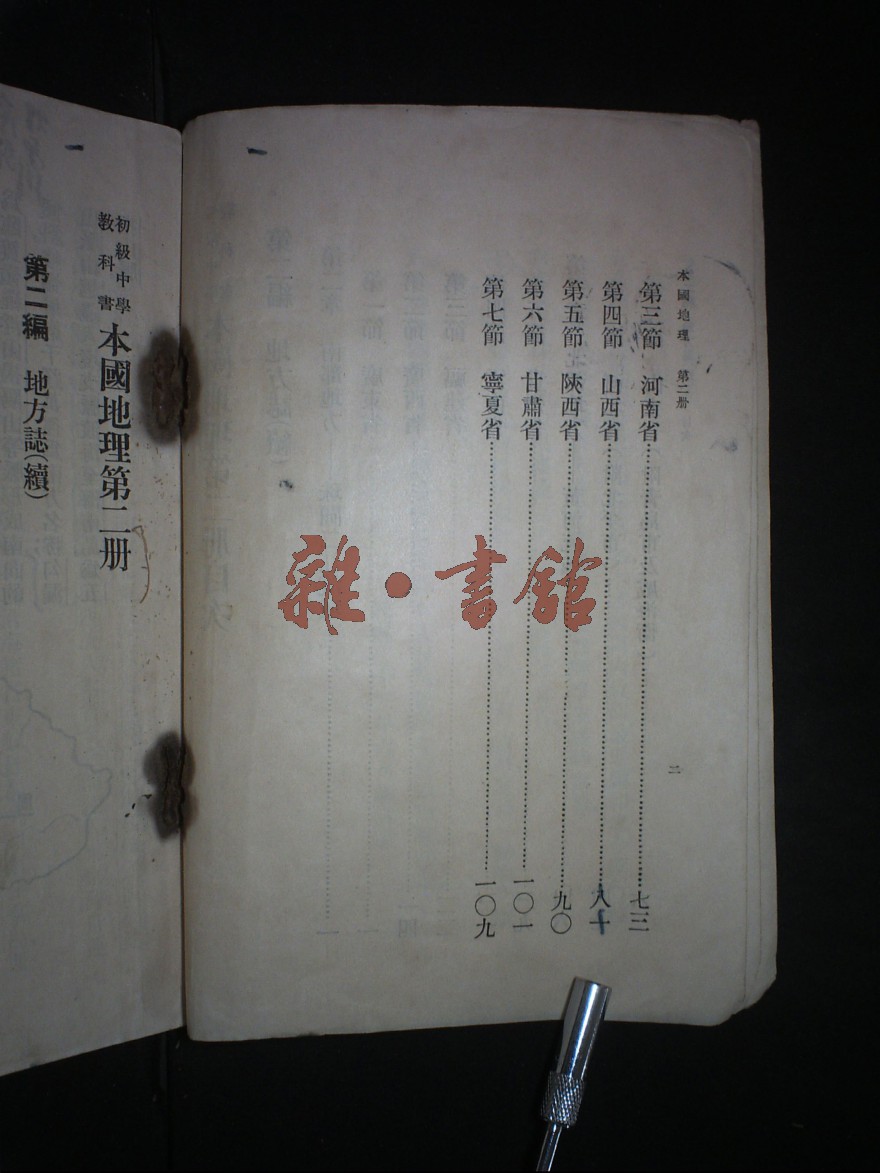 本國地理 第二册
二
第三節 河南省……七三
第四節 山西省……八十
第五節 陝西省……九〇
第六節 甘肅省……一〇一
第七節 寧夏省……一〇九
初級中學
教科書
本國地理第二册
第二編 地方誌(續)
雜·書館